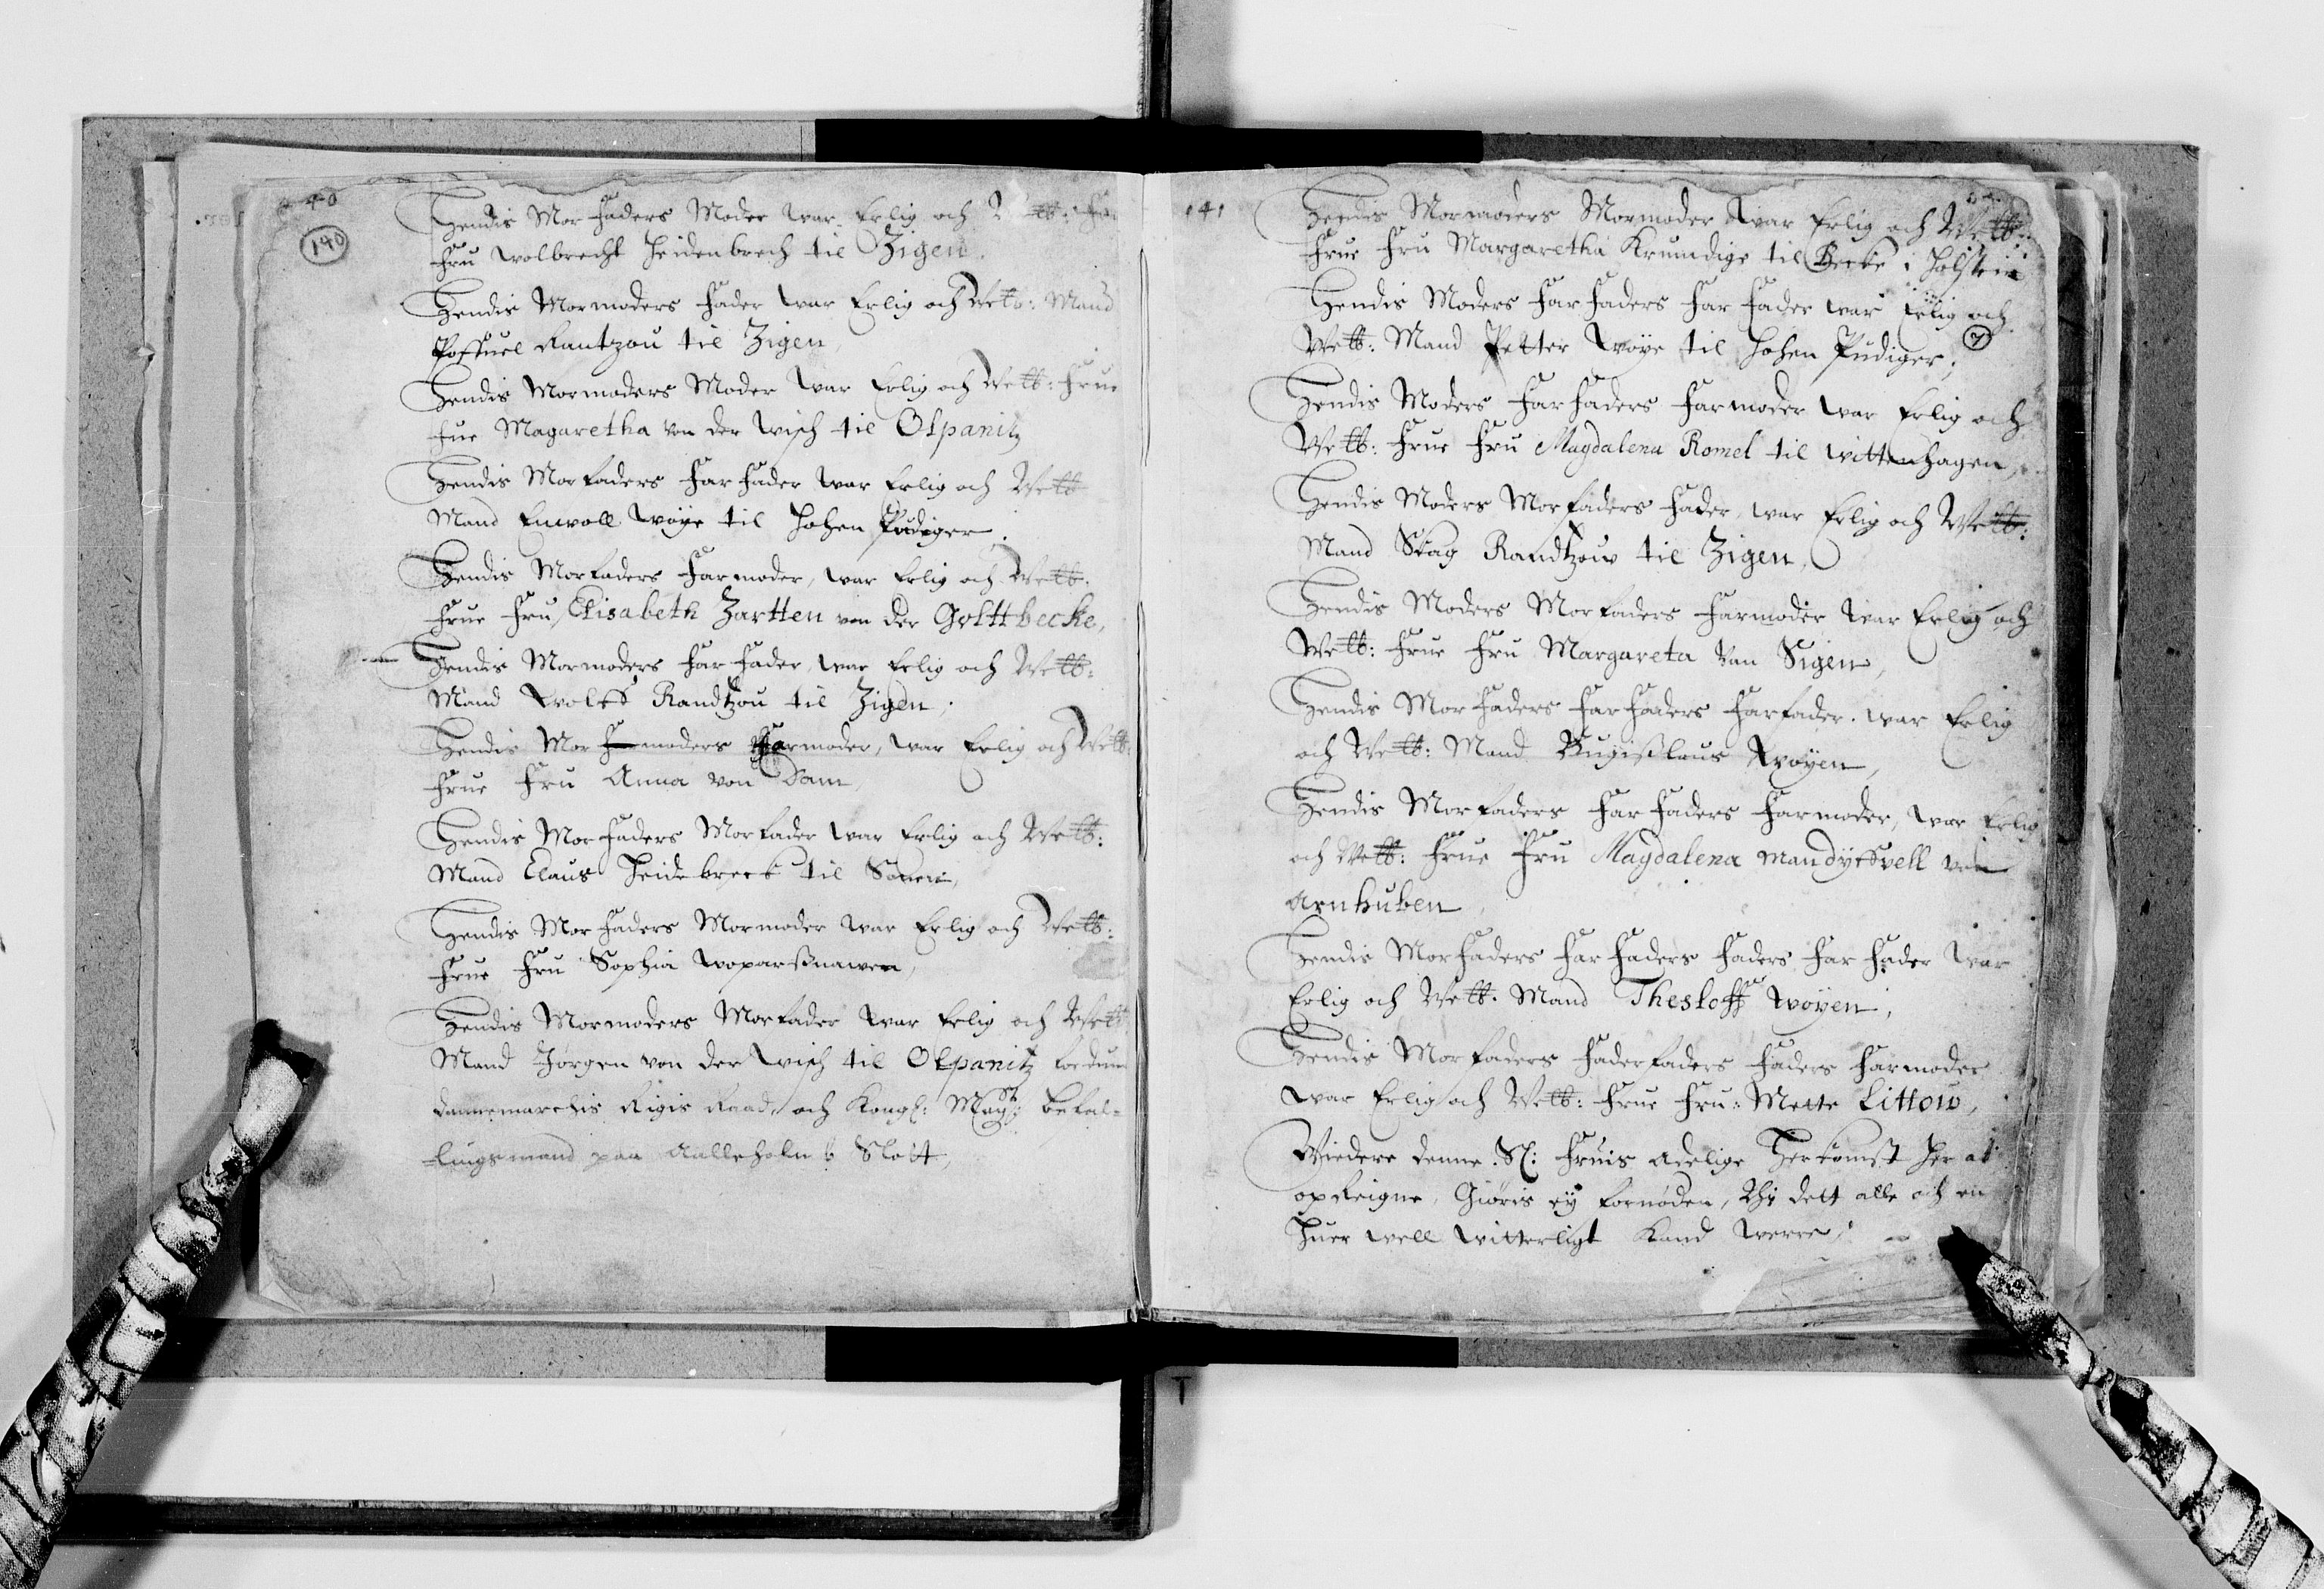 140
140
Hendis Morfaders Moder war Erlig och Velb:
Fru Wolbrecht Heidenbrech til Zigen.
Hendis Mormoders Fader war Erlig och Velb: Mand
Poffuel Rantzou til Zigen,
Hendis Mormoders Moder war Erlig och Velb: Frue
Frue Magaretha von der Wisch til Olpanitz
Hendis Morfaders Farfader war Erlig och Velb
Mand Enwoll Woye til Hohen Pudiger.
Hendis Morfaders Farmoder, war Erlig och Velb.
Frue Fru Elisabeth Zartten von der Golttbecke,
Hendis Mormoders Farfader, war Erlig och Velb:
Mand Wolff Randtzou til Zigen.
Hendis Mor moders Farmoder, war Erlig och Velb:
Frue Fru Anna von Dam,
Hendis Morfaders Morfader war Erlig och Velb:
Mand Claus Heidebreck til
Hendis Morfaders Mormoder war Erlig och Velb:
Frue Fru Sophia Woparßnawen,
Hendis Mormoders Morfader war Erlig och Velb
Mand Jørgen von der Wisch til Olpanitz fordum
dannemarchis Rigis Raad, och Kongl: Mayst: befal-
lingsmand paa Aalleholm Slott,
141
Hendis Mormoders Mormoder War Erlig och Velb:
Frue Fru Margaretha Krumdige til Becke i Holstein
Hendis Moders Farfaders Farfader war Erlig och
Velb: Mand Petter Woye til Hohen Pudiger;
7
Hendis Moders Farfaders Farmoder war Erlig och
Velb: Frue Fru Magdalena Romel til Wittenhagen,
Hendis Moders Morfaders Fader, war Erlig och Velb:
Mand Skag Randtzow til Zigen,
Hendis Moders Morfaders Farmoder war Erlig och
Velb: Frue Fru Margareta Van Sigen,
Hendis Morfaders Farfaders Farfader. war Erlig
och Velb: Mand Bugißlaus Woyen,
Hendis Morfaders Farfaders Farmoder, war Erlig
och Velb: Frue Fru Magdalena Mandyffvell von
Arnhuben,
Hendis Morfaders Farfaders Faders Farfader War
Erlig och Velb. Mand Thesloff Woyen,
Hendis Morfaders Faderfaders Faders Farmoder
war Erlig och Velb: Frue Fru: Mette Littow,
Widere denne Sl: Fruis Adelige Herkomst her at
opReigne, Giøris ey fornøden, Thj dett alle och en
huer well witterligt Kand werre,